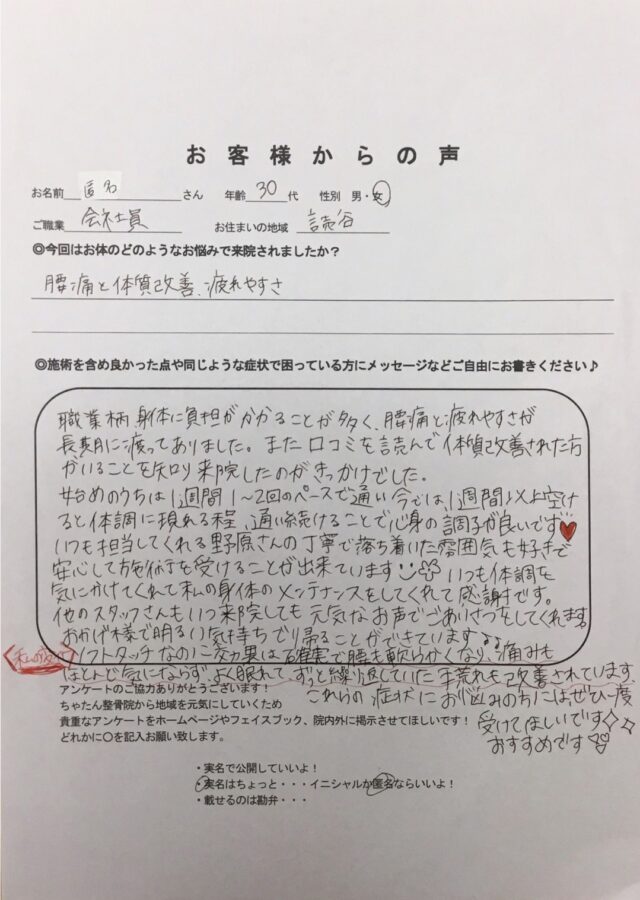 お客様からの声
お名前 匿名 さん 年齢 30 代 性別 男・女
ご職業 会社員 お住まいの地域 読谷
◎今回はお体のどのようなお悩みで来院されましたか？
腰痛と体質改善、疲れやすさ
◎施術を含め良かった点や同じような症状で困っている方にメッセージなどご自由にお書きください♪
職業柄身体に負担がかかることが多く、腰痛と疲れやすさが
長期に渡ってありました。また口コミを読んで体質改善された方
がいることを知り来院したのがきっかけでした。
始めのうちは1週間1～2回のペースで通い今では、1週間以上空け
ると体調に現れる程、通い続けることで心身の調子が良いです♥
いつも担当してくれる野原さんの丁寧で落ち着いた雰囲気も好きで
安心して施術を受けることが出来ています いつも体調を
気にかけてくれて私の身体のメンテナンスをしてくれて感謝です。
他のスタッフさんもいつ来院しても元気なお声でごあいさつをしてくれます。
おかげ様で明るい気持ちで帰ることができています♪
ソフトタッチなのに効果は確実で腰も軟らかくなり、痛みも
ほとんど気にならず、よく眠れて ずっと繰り返していた手荒れも改善されています。
これらの症状にお悩みの方にはぜひ一度
受けてほしいです
おすすめです
アンケートのご協力ありがとうございます！
ちゃたん整骨院から地域を元気にしていくため
貴重なアンケートをホームページやフェイスブック、院内外に掲示させてほしいです！
どれかに〇を記入お願い致します。
・実名で公開していいよ！
・実名はちょっと・・・イニシャルか匿名ならいいよ！
・載せるのは勘弁・・・